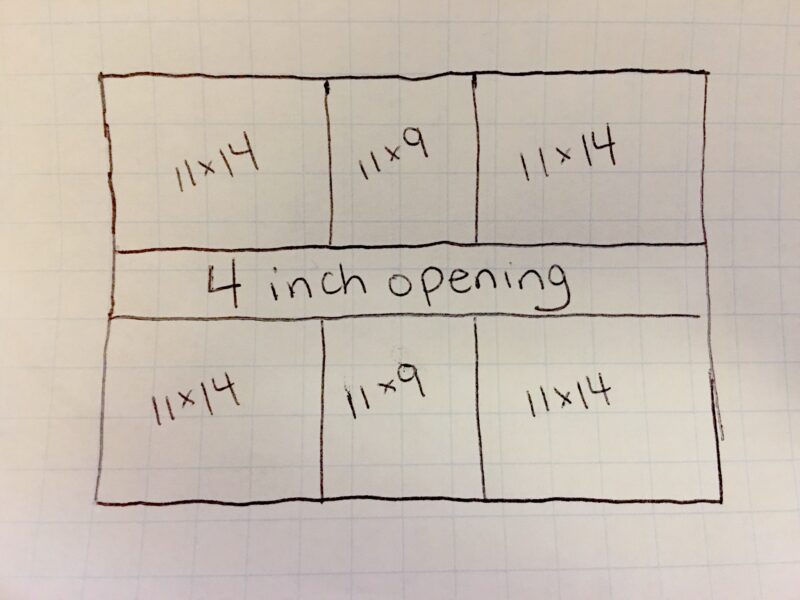 11x14 11x9 11x14
4 inch opening
11x14 11x9 11x14